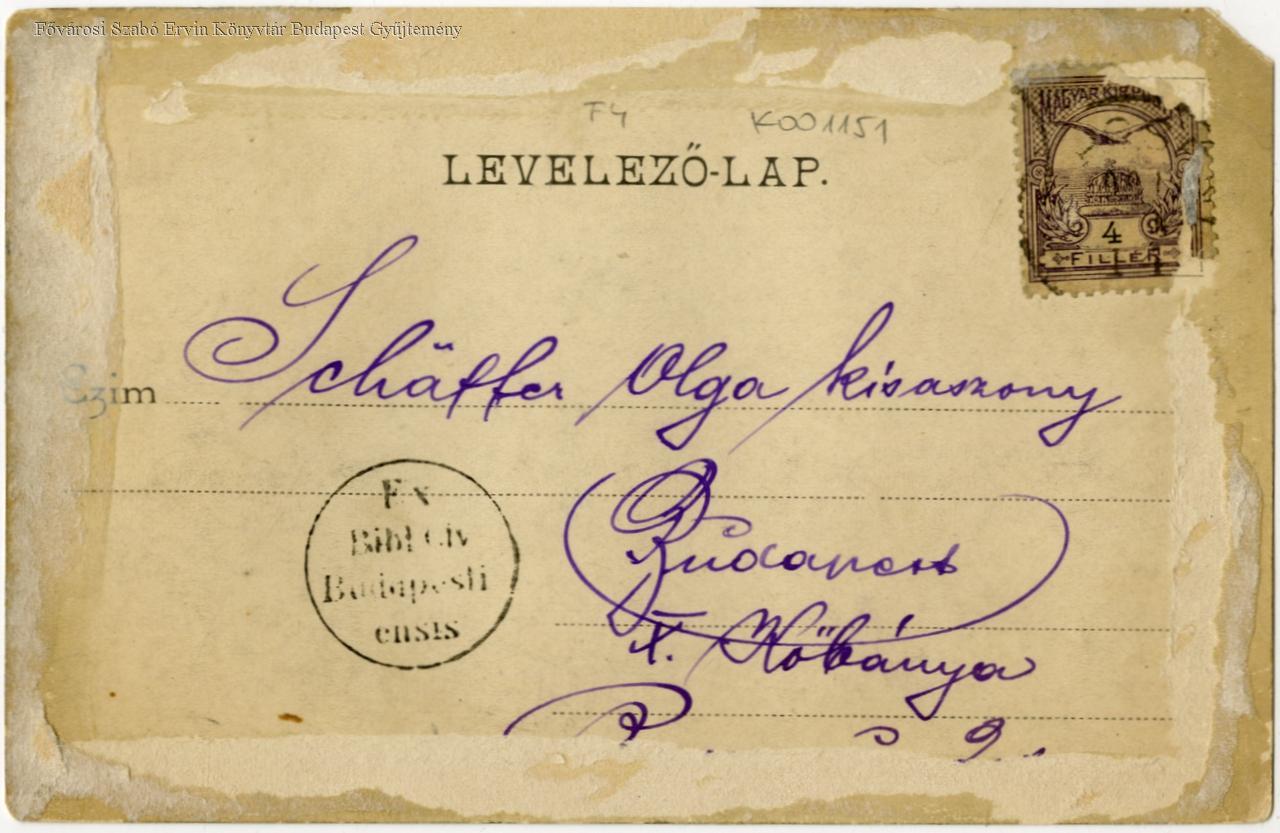 Fővárosi Szabó Ervin Könyvtár Budapest Gyűjtemény
F4 K001151
LEVELEZŐ-LAP.
MAGYAR KIR. POSTA
4
FILLÉR
Czim Schäffer Olga kisaszony
Ex
Bibl Civ
Budapesti
ensis
Budapest
X. Kőbánya